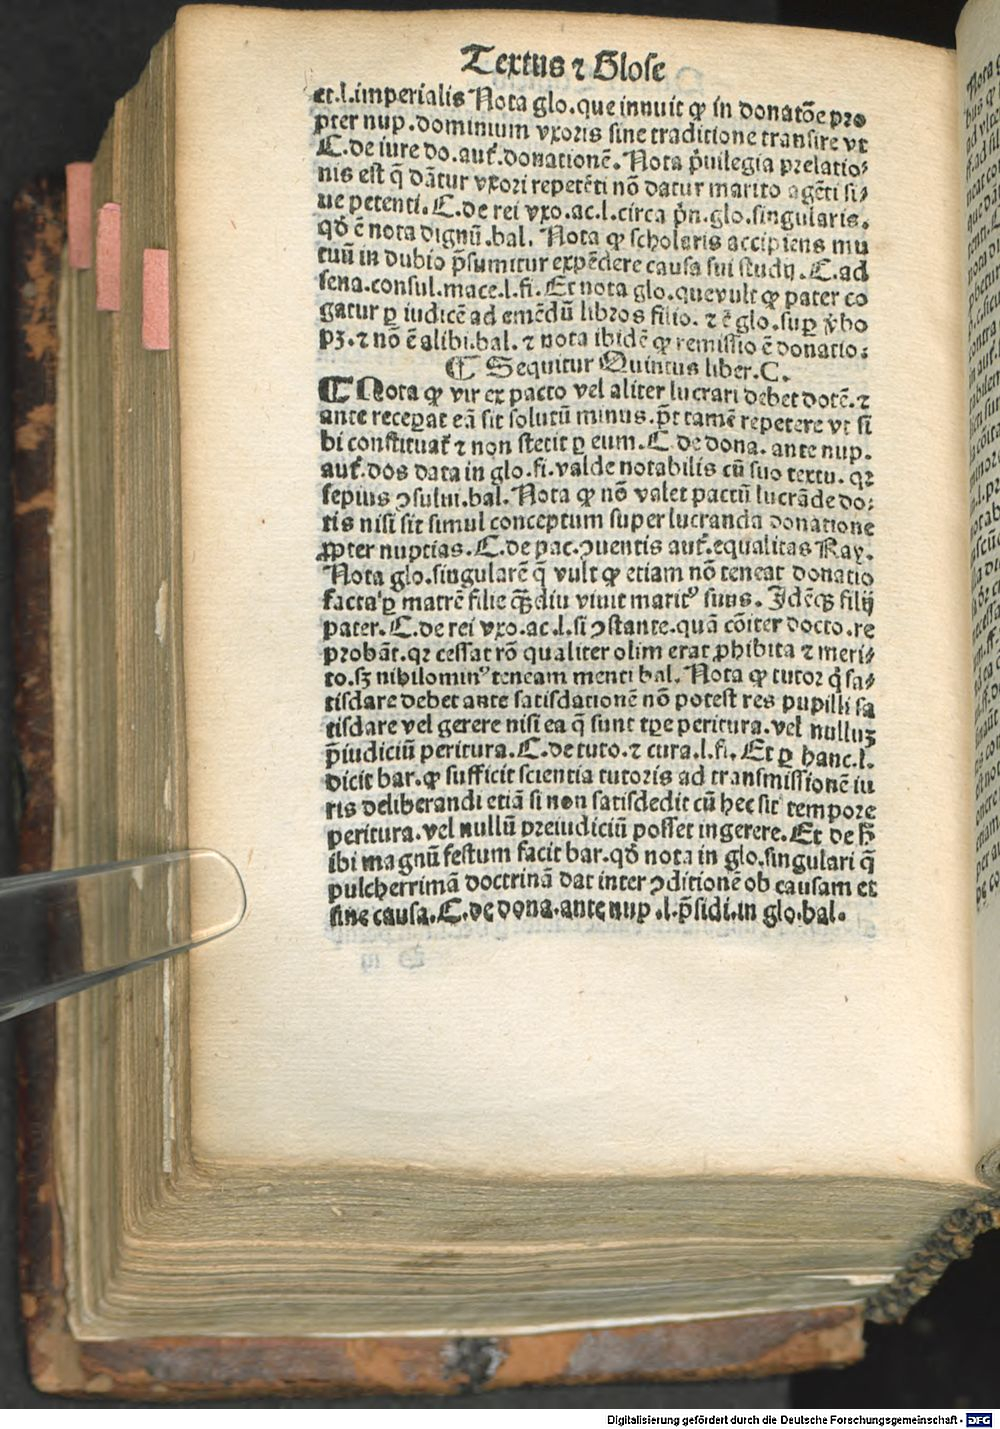 Textus ⁊ Glose
et.l.imperialis Nota glo.que innuit ꝙ in donatōe pro
pter nup.dominium vxoris sine traditione transire vt
C.de iure do.aut̕.donationē. Nota p̄uilegia prelatio⸗
nis est q̄ dātur vxori repetēti nō datur marito agēti si⸗
ue petenti. C.de rei vxo.ac.l.circa p̄n.glo.singularis.
qd̕ ē nota dignū.bal. Nota ꝙ scholaris accipiens mu
tuū in dubio p̄sumitur expēdere causa sui studij. C.ad
sena.consul.mace.l.fi. Et nota glo.quevult ꝙ pater co
gatur ꝑ iudicē ad emēdū libros filio. ⁊ ē glo.suꝑ v̕bo
pꝫ.⁊ nō ē alibi.bal. ⁊ nota ibidē ꝙ remissio ē donatio:
¶ Sequitur Quintus liber.C.
¶ Nota ꝙ vir ex pacto vel aliter lucrari debet dotē.⁊
ante receꝑat eā sit solutū minus.p̄t tamē repetere vt si
bi constituat̕ ⁊ non stetit ꝑ eum.C.de dona. ante nup.
aut̕.dos data in glo.fi.valde notabilis cū suo textu. qꝛ
sepius ꝯsului.bal. Nota ꝙ nō valet pactū lucrāde do:
tis nisi sit simul conceptum super lucranda donatione
ꝓpter nuptias. C.de pac.ꝯuentis aut̕.equalitas Ray.
Nota glo.singularē q̄ vult ꝙ etiam nō teneat donatio
facta ꝑ matrē filie qꝫdiu viuit maritꝰ suus. Idēqꝫ filij
pater. C.de rei vxo.ac.l.si ꝯstante.quā cōiter docto.re
probāt.qꝛ cessat rō qualiter olim erat ꝓhibita ⁊ meri⸗
to.sꝫ nihilominꝰ teneam menti bal. Nota ꝙ tutor q̄ sa⸗
tisdare debet ante satisdationē nō potest res pupilli sa
tisdare vel gerere nisi ea q̄ sunt tꝑe peritura. vel nulluꝫ
p̄iudiciū peritura. C.de tuto.⁊ cura.l.fi. Et ꝑ hanc.l.
dicit bar.ꝙ sufficit scientia tutoris ad transmissionē iu
ris deliberandi etiā si non satisdedit cū hec sit tempore
peritura.vel nullū preiudiciū posset ingerere. Et de h̄
ibi magnū festum facit bar.qd̕ nota in glo.singulari q̄
pulcherrimā doctrinā dat inter ꝯditionē ob causam et
sine causa. C.de dona.ante nup.l.p̄sidi.in glo.bal.
Digitalisierung gefördert durch die Deutsche Forschungsgemeinschaft - DFG